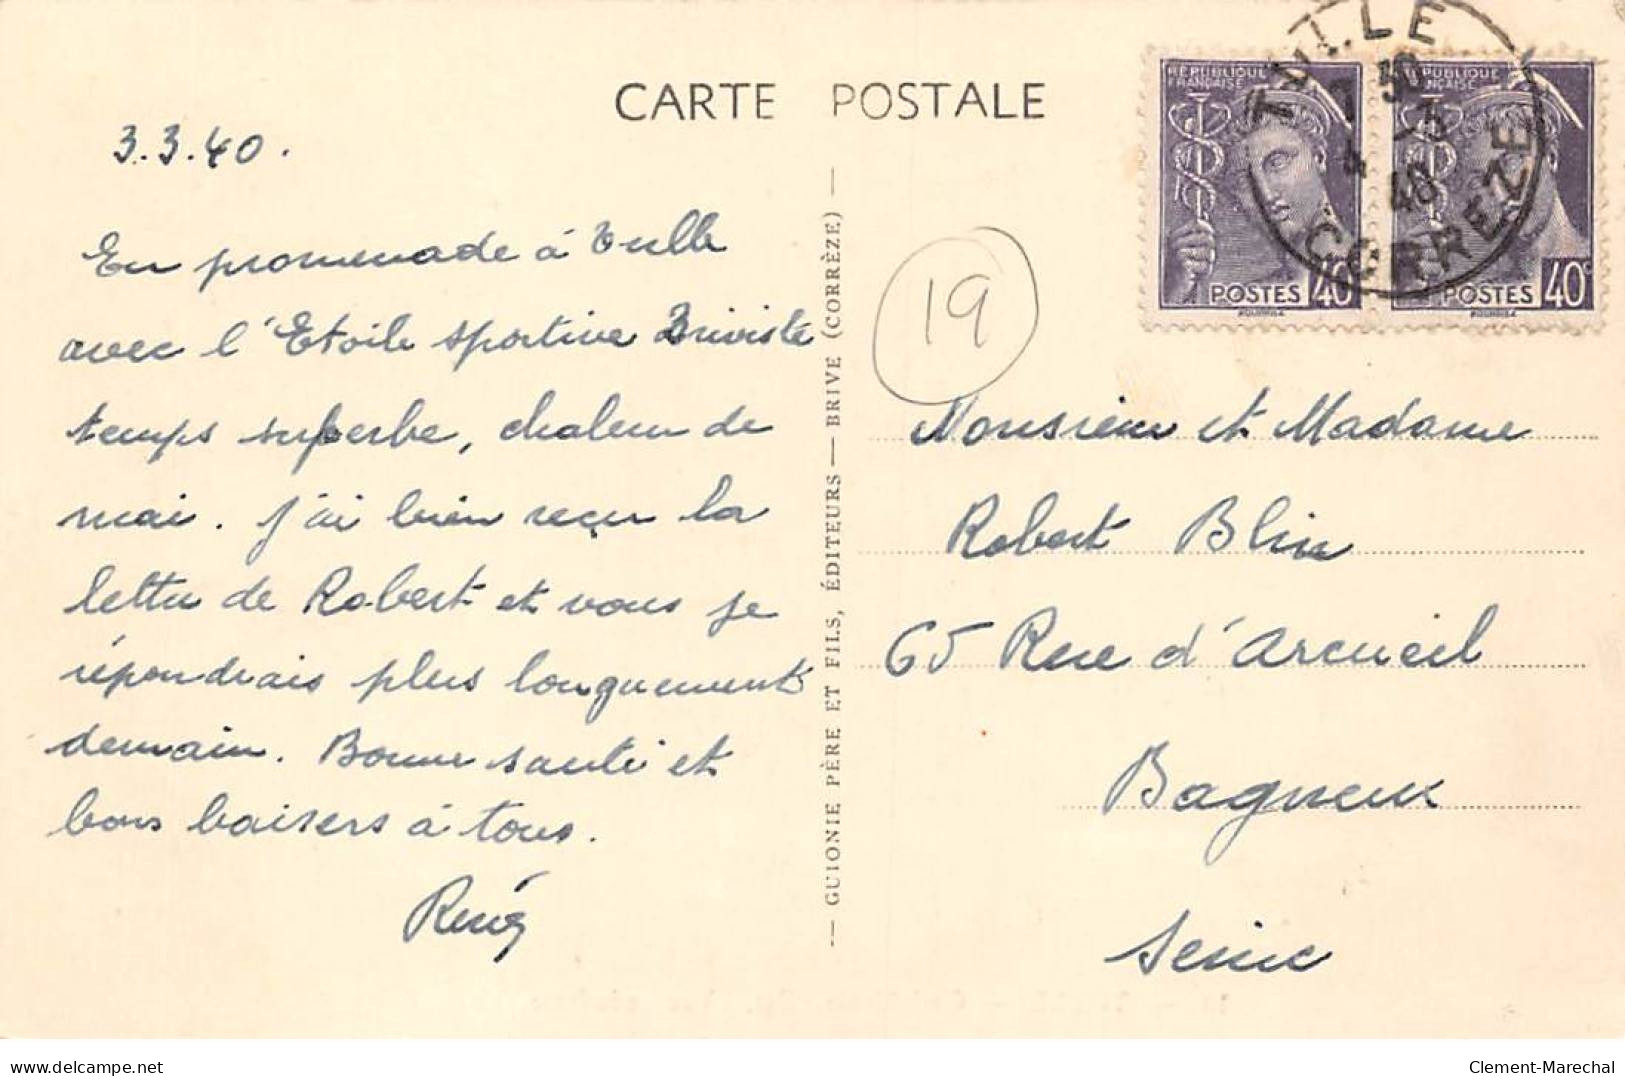 CARTE POSTALE
3.3.40.
En promenade à Tulle
avec l'Etoile sportive Briviste
temps superbe, chaleur de
mai. J'ai bien reçu la
lettre de Robert et vous je
répondrais plus longuement
demain. Bonne santé et
bons baisers à tous.
René
— GUIONIE PÈRE ET FILS, ÉDITEURS — BRIVE (CORRÈZE) —
19
RÉPUBLIQUE
FRANÇAISE
POSTES 40
RÉPUBLIQUE
FRANÇAISE
POSTES 40c
TULLE
30
4 -3
40
CORREZE
Monsieur et Madame
Robert Blin
65 Rue d'Arcueil
Bagneux
Seine
delcampe.net
Clement-Marechal